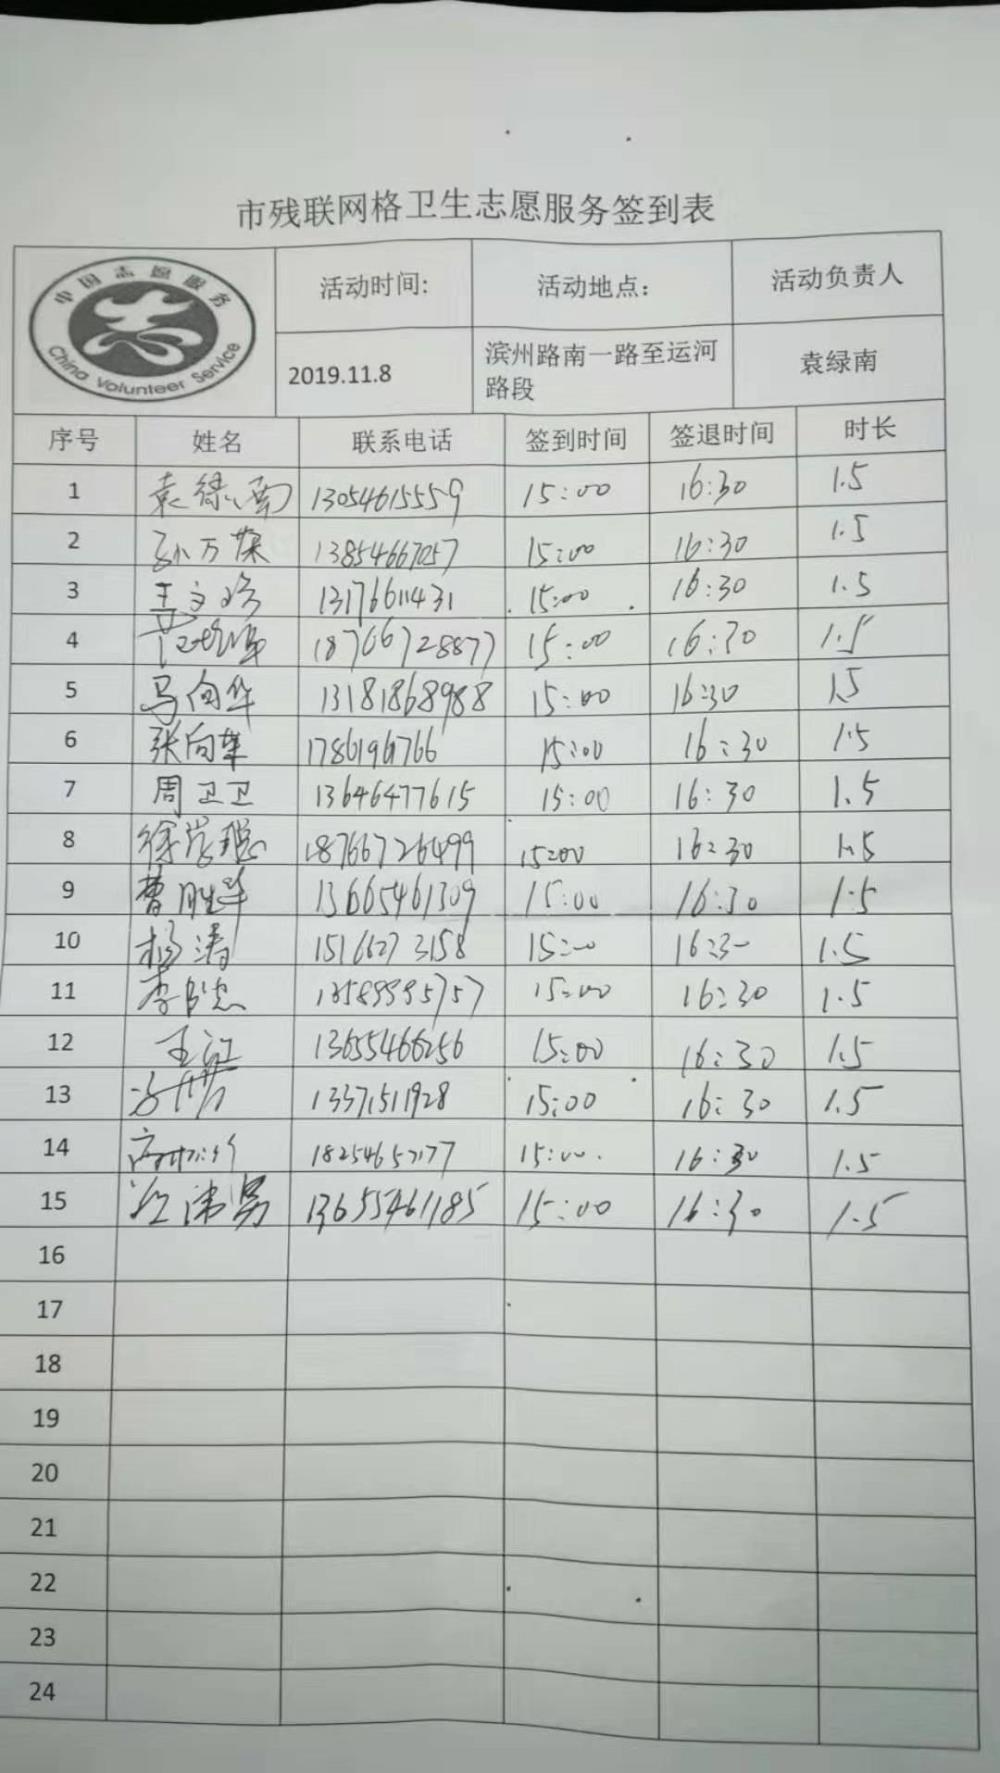 市残联网格卫生志愿服务签到表
中国志愿服务
China Volunteer Service
活动时间: 活动地点: 活动负责人
2019.11.8 滨州路南一路至运河路段 袁绿南
序号 姓名 联系电话 签到时间 签退时间 时长
1 袁绿南 13054615559 15:00 16:30 1.5
2 13854667057 15:00 16:30 1.5
3 13176611431 15:00 16:30 1.5
4 18766728877 15:00 16:30 1.5
5 马向华 13181868988 15:00 16:30 1.5
6 张向华 1786196766 15:00 16:30 1.5
7 周卫卫 13646477615 15:00 16:30 1.5
8 18766726499 15:00 16:30 1.5
9 曹胜华 13665461309 15:00 16:30 1.5
10 杨涛 15166273158 15:00 16:30 1.5
11 15:00 16:30 1.5
12 王江 13655466256 15:00 16:30 1.5
13 13371511928 15:00 16:30 1.5
14 15:00 16:30 1.5
15 13655461185 15:00 16:30 1.5
16
17
18
19
20
21
22
23
24